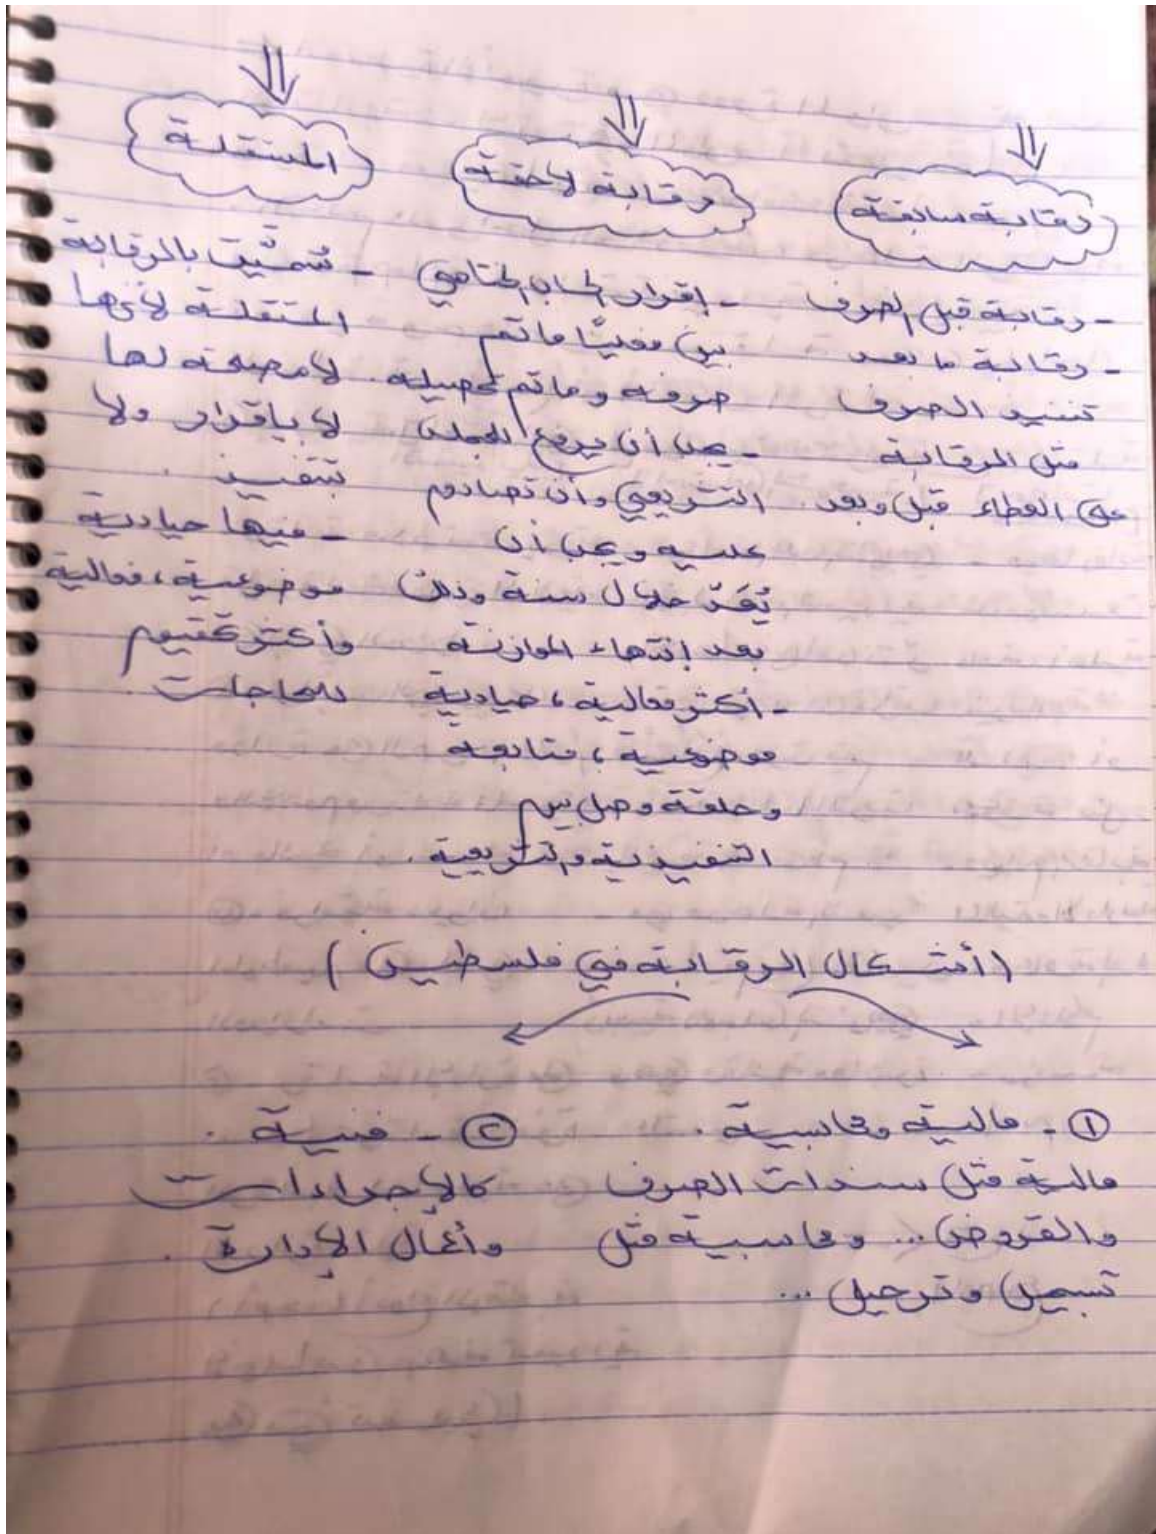 رقابة سابقة
- رقابة قبل الصرف
- رقابة ما بعد
تنفيذ الصرف
مثل الرقابة
على العطاء قبل وبعد.
رقابة لاحقة
- إقرار الحساب الختامي
يبين فعليًا ما تم
صرفه وما تم تحصيله.
- يجب أن يرفع للمجلس
التشريعي وأن تصادم
عليه ويجب أن
يُقَرّ خلال سنة وذلك
بعد إنتهاء الموازنة
- أكثر فعالية، حيادية
موضوعية، متابعة
وحلقة وصل بين
التنفيذية والتشريعية.
المستقلة
- سُميّت بالرقابة
المستقلة لأنها
لا مصلحة لها
لا بإقرار ولا
بتنفيذ.
- فيها حيادية
موضوعية، فعالية
وأكثر تقييم
للحاجات.
(أشكال الرقابة في فلسطين)
① - مالية ومحاسبية.
مالية مثل سندات الصرف
والقروض... ومحاسبية مثل
تسجيل وترحيل...
② - فنية.
كالإجراءات
وأعمال الإدارة.